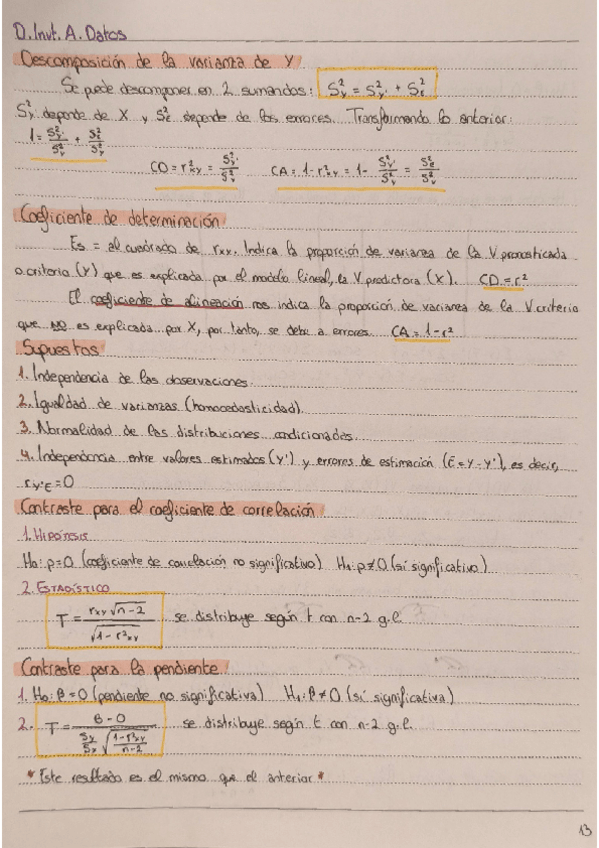 D. Invt. A. Datos
Descomposición de la varianza de Y
Se puede descomponer en 2 sumandos: S²y = S²y' + S²ε
S²y' depende de X y S²ε depende de los errores. Transformando lo anterior:
1 = S²y'/S²y + S²ε/S²y
CD = r²xy = S²y'/S²y CA = 1 - r²xy = 1 - S²y'/S²y = S²ε/S²y
Coeficiente de determinación
Es = al cuadrado de rxy. Indica la proporción de varianza de la V pronosticada
o criterio (Y) que es explicada por el modelo lineal, la V predictora (X). CD = r²
El coeficiente de alineación nos indica la proporción de varianza de la V criterio
que NO es explicada por X, por tanto, se debe a errores. CA = 1 - r²
Supuestos
1. Independencia de las observaciones.
2. Igualdad de varianzas (homocedasticidad).
3. Normalidad de las distribuciones condicionadas.
4. Independencia entre valores estimados (Y') y errores de estimación (Ɛ = Y - Y'), es decir,
ry'ε = 0
Contraste para el coeficiente de correlación
1. HIPÓTESIS
H0: ρ = 0 (coeficiente de correlación no significativo) H1: ρ ≠ 0 (sí significativo)
2. ESTADÍSTICO
T = rxy √n-2 / √1 - r²xy se distribuye según t con n-2 g.l.
Contraste para la pendiente
1. H0: β = 0 (pendiente no significativa) H1: β ≠ 0 (sí significativa)
2. T = B - 0 / Sy/Sx √1-r²xy/n-2 se distribuye según t con n-2 g.l.
* Este resultado es el mismo que el anterior *
13